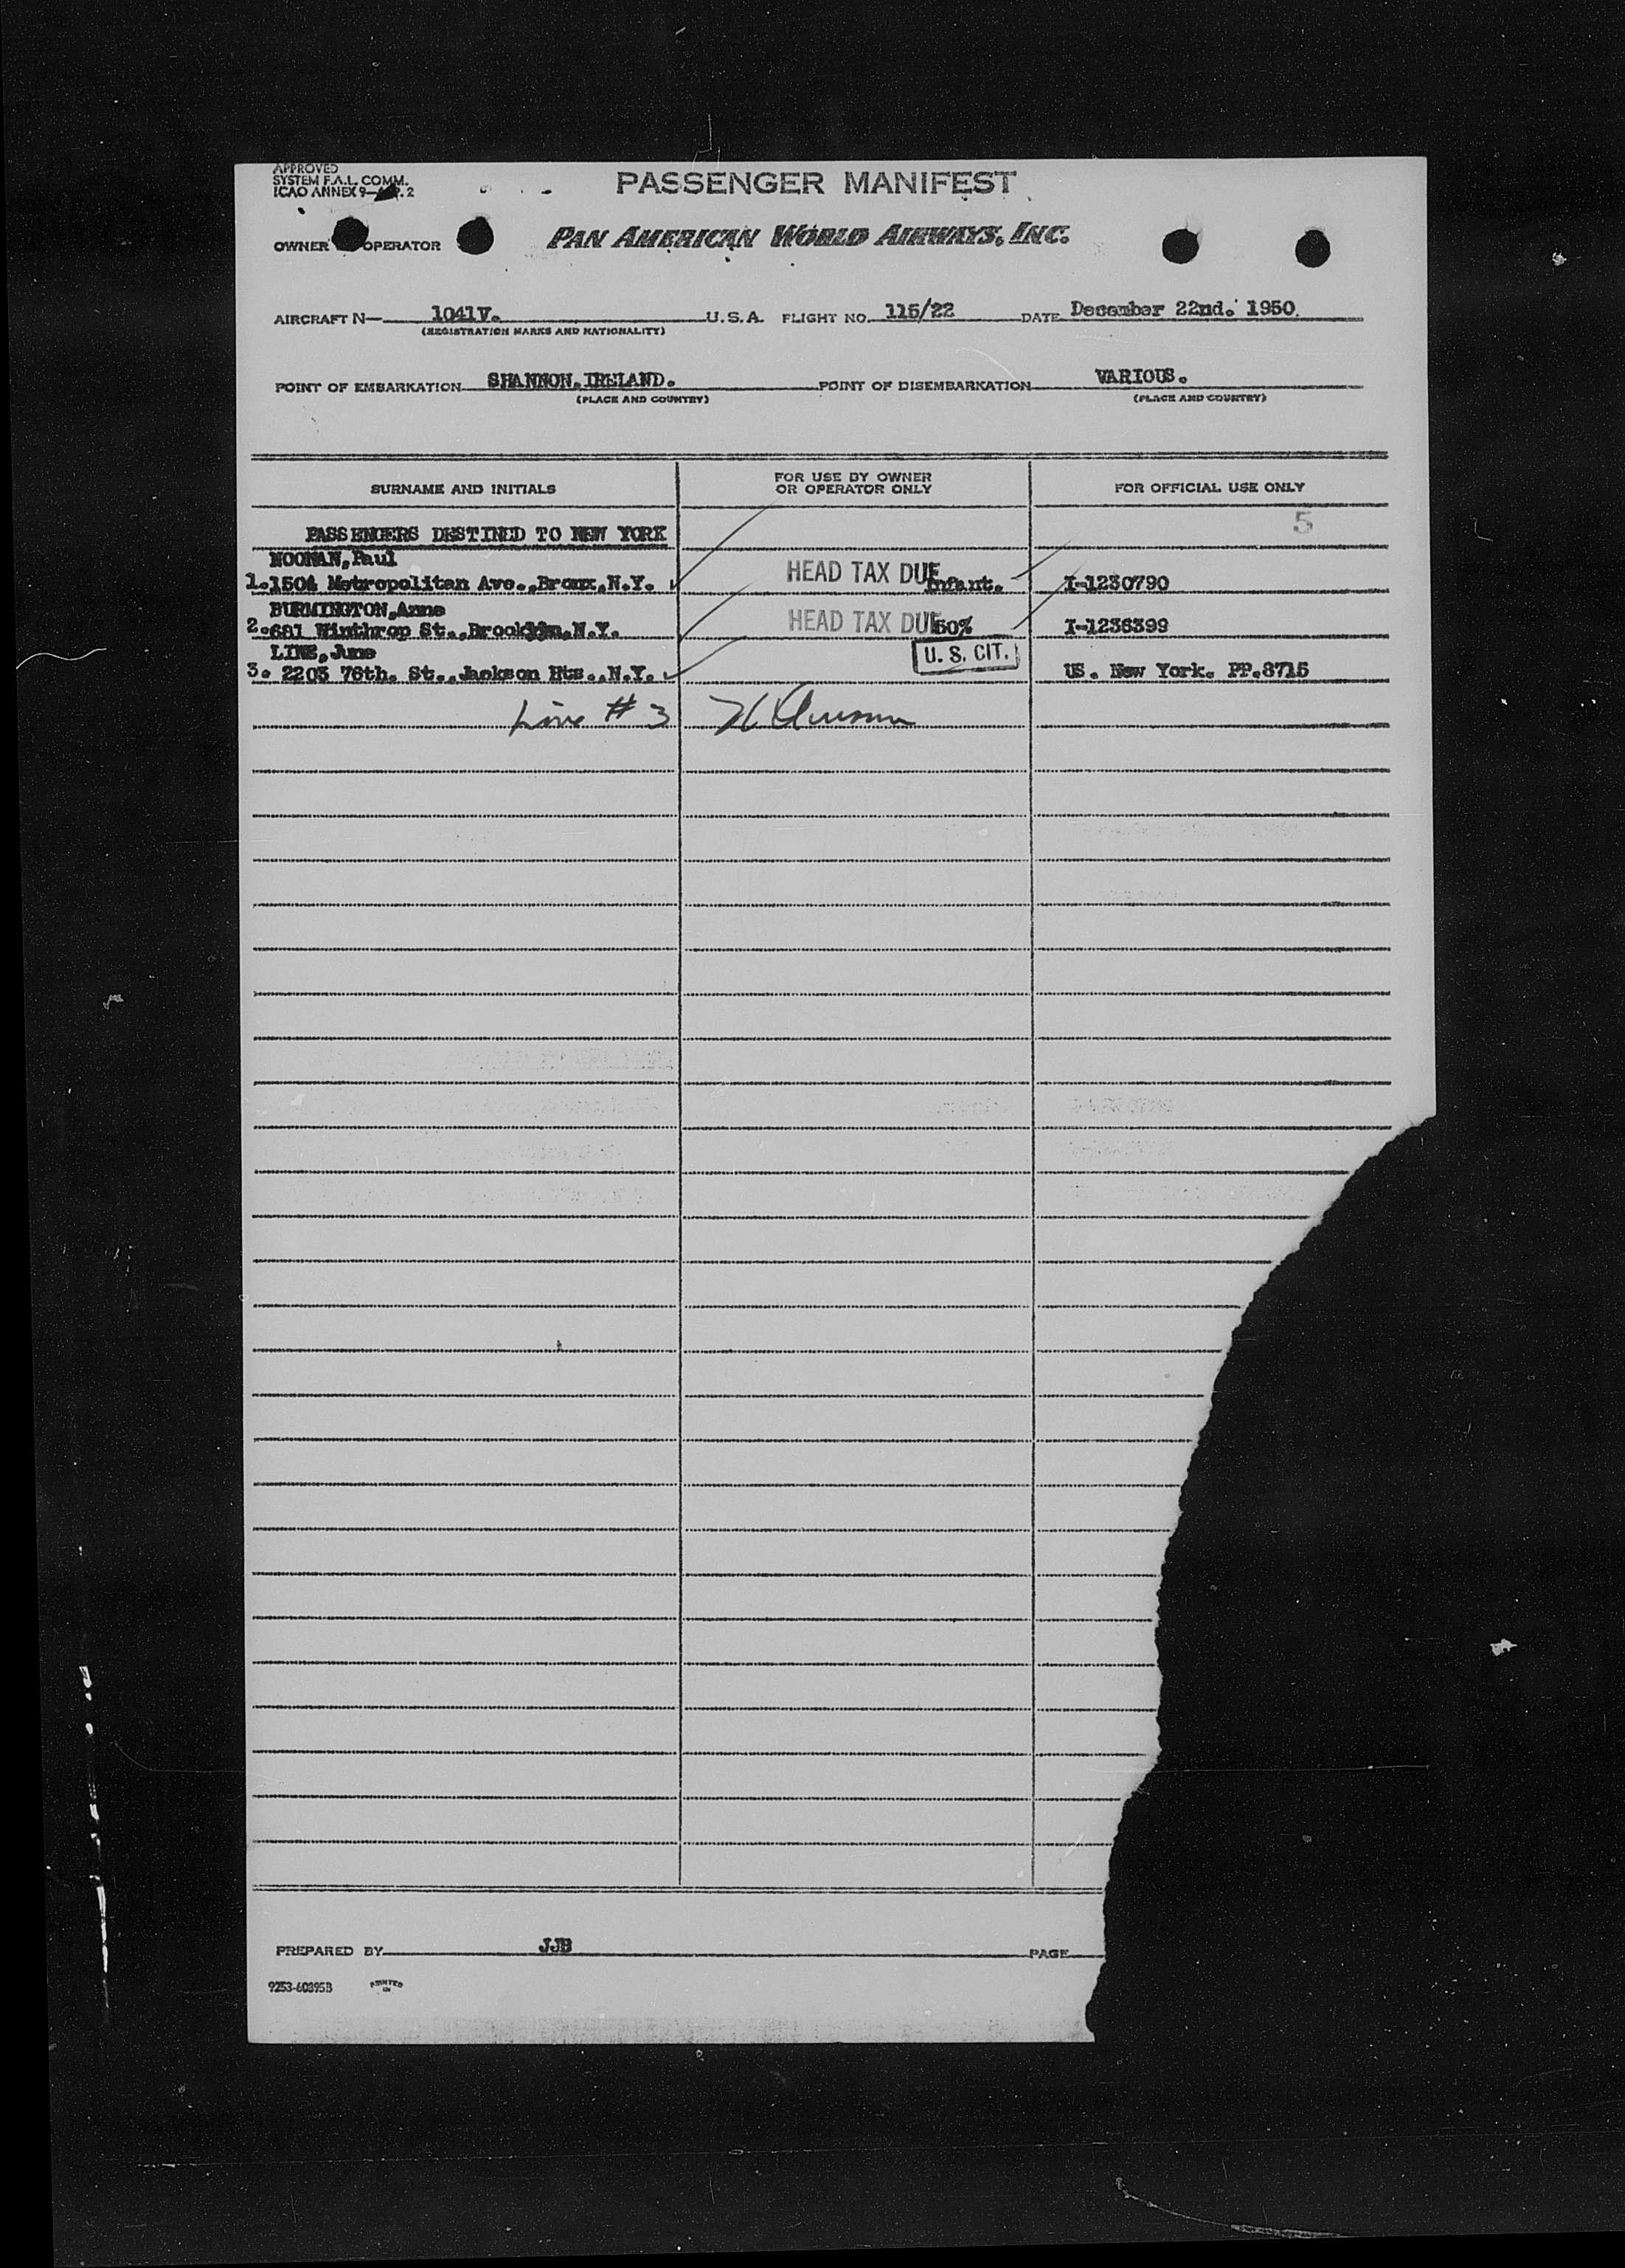 APPROVED
SYSTEM F.A.L. COMM.
ICAO ANNEX 9
PASSENGER MANIFEST
OWNER OPERATOR PAN AMERICAN WORLD AIRWAYS, INC.
AIRCRAFT N— 1041V. U.S.A. FLIGHT NO. 115/22 DATE December 22nd. 1950.
(REGISTRATION MARKS AND NATIONALITY)
POINT OF EMBARKATION SHANNON, IRELAND. POINT OF DISEMBARKATION VARIOUS.
(PLACE AND COUNTRY) (PLACE AND COUNTRY)
SURNAME AND INITIALS FOR USE BY OWNER OR OPERATOR ONLY FOR OFFICIAL USE ONLY
5
PASSENGERS DESTINED TO NEW YORK
NOONAN,Paul
1.1504 Metropolitan Ave.,Bronx,N.Y. HEAD TAX DUE Infant. I-1230790
BURMINGTON,Anne
2.681 Winthrop St.,Brooklyn,N.Y. HEAD TAX DUE 50% I-1236399
LINE,June U. S. CIT.
3. 2203 76th. St.,Jackson Hts.,N.Y. US. New York. PP.8715
Line # 3
PREPARED BY JJB PAGE
9253-60395B PRINTED IN